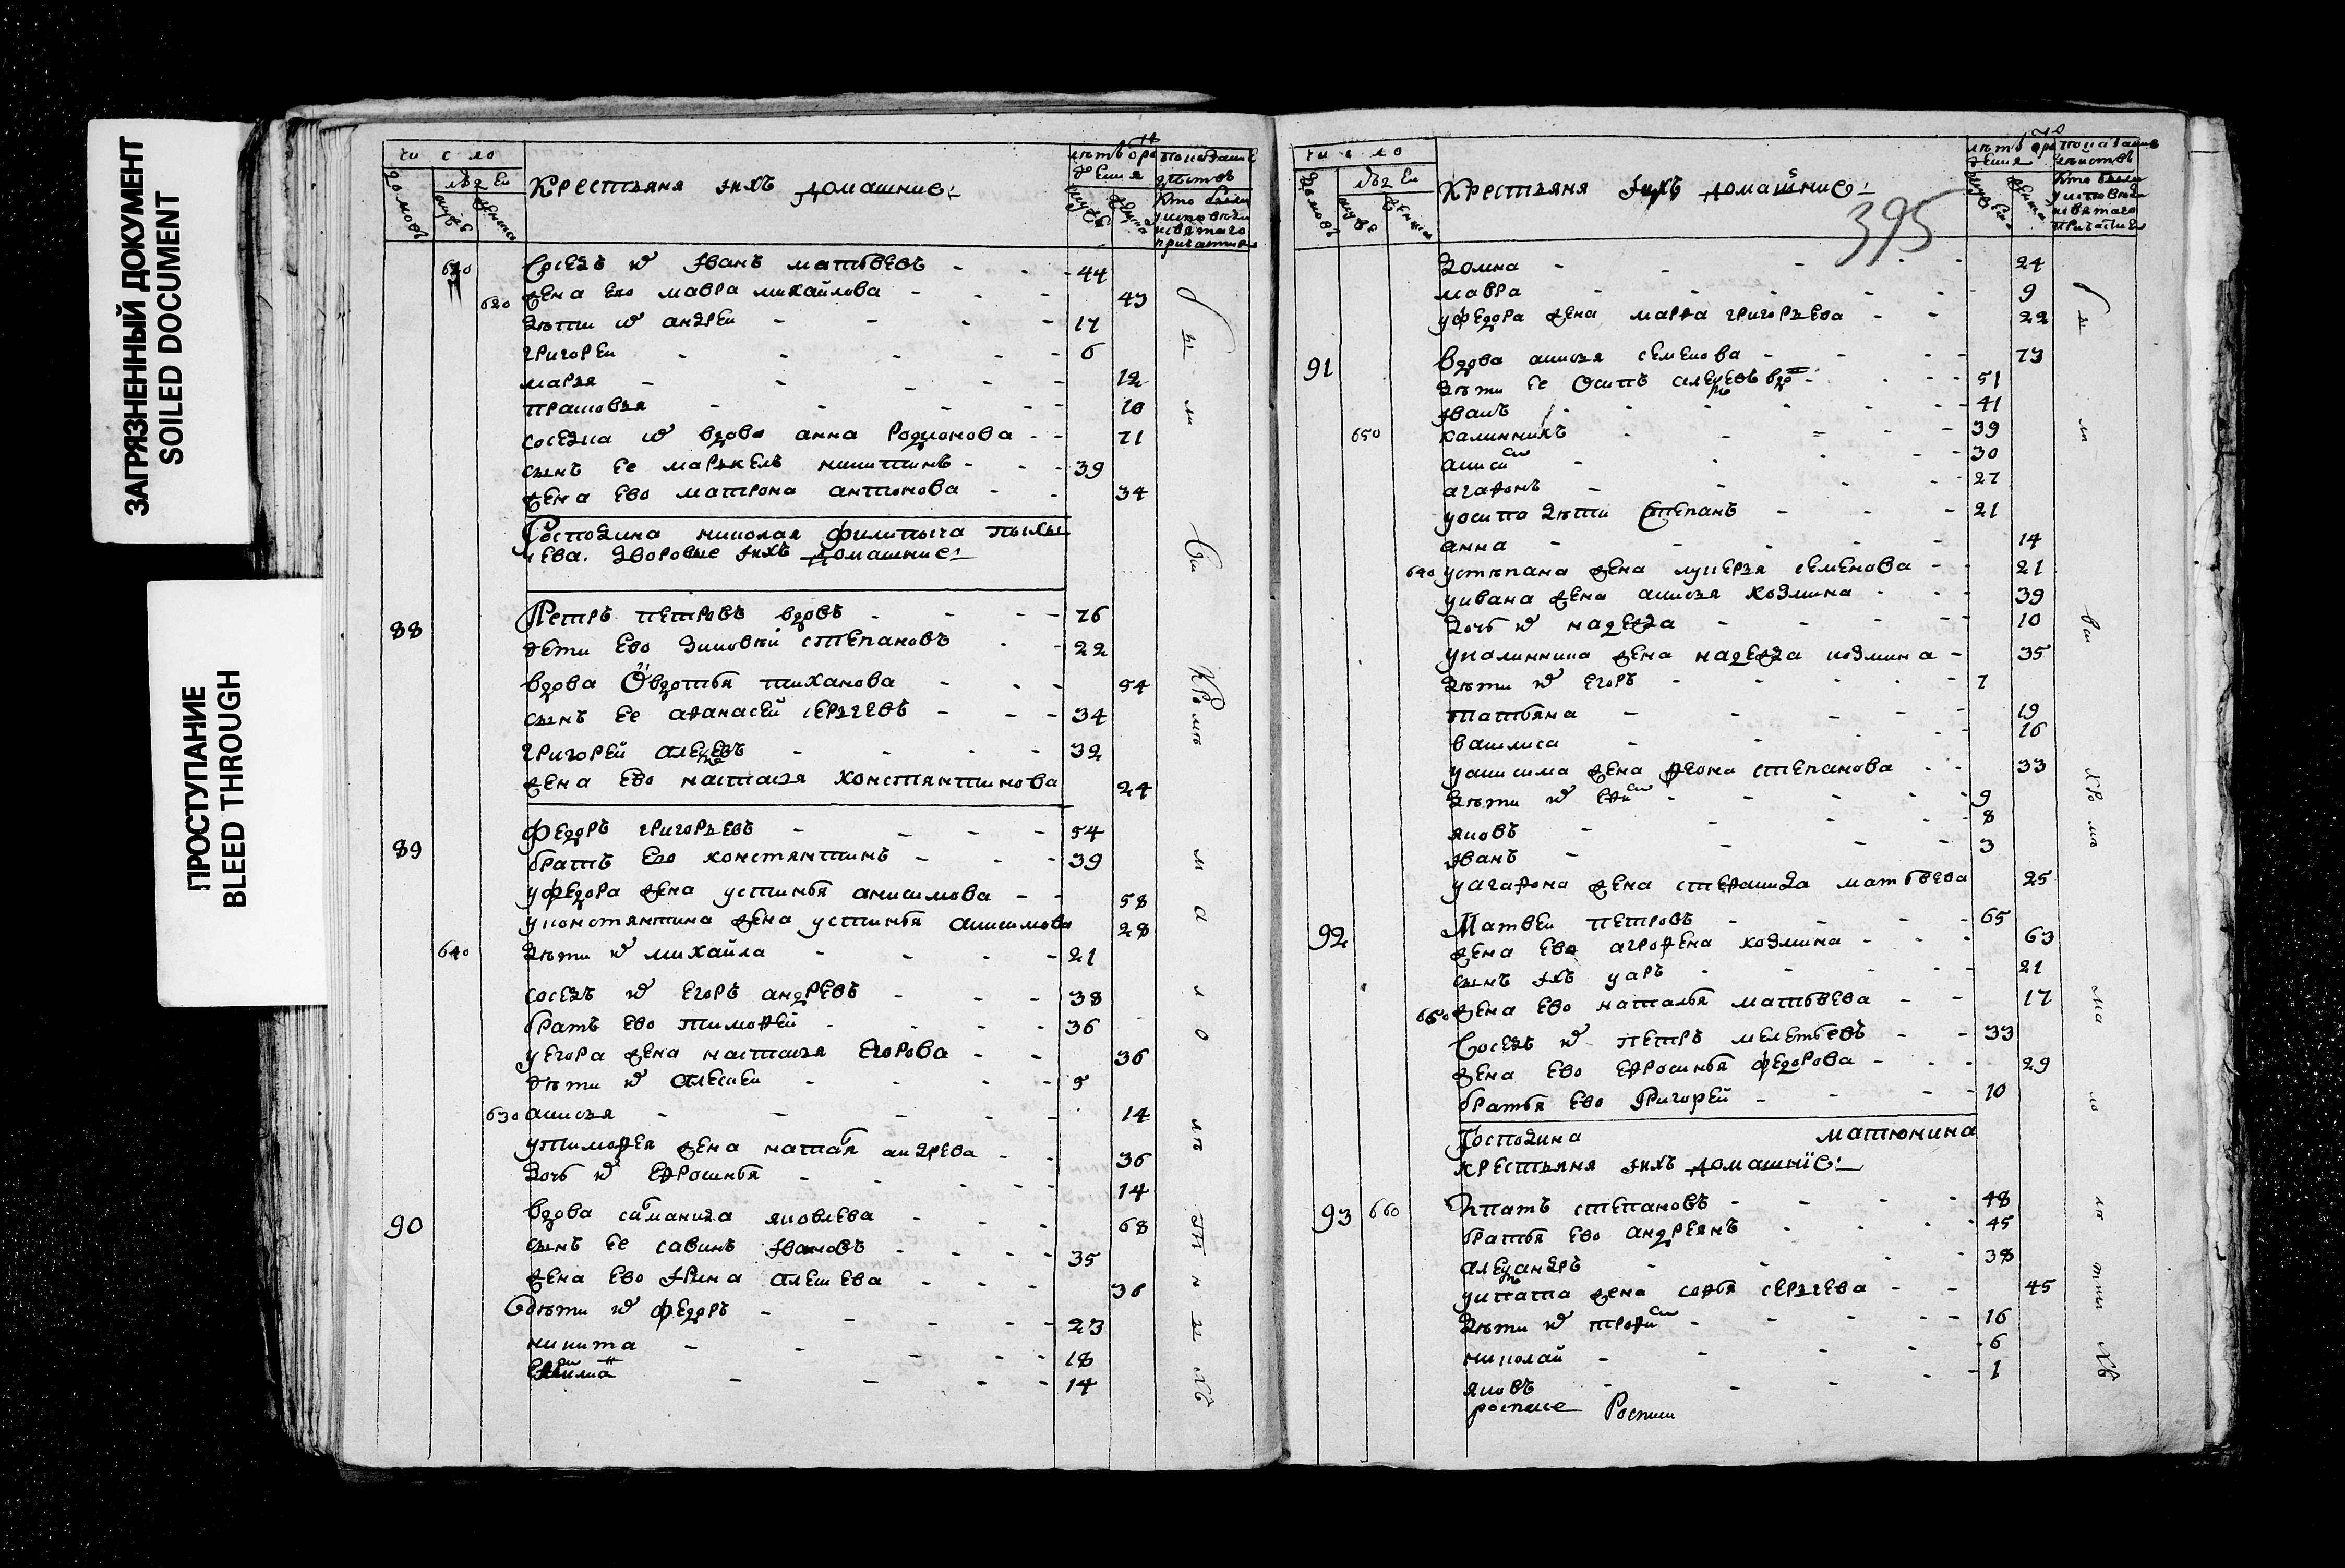 ЗАГРЯЗНЕННЫЙ ДОКУМЕНТ
SOILED DOCUMENT
ПРОСТУПАНИЕ
BLEED THROUGH
число
людеи
домовъ
мужеска
женска
Крестьяня ихъ домашние:
мужеска
женска
кто были
у исповеди
и святаго
причастия
Соседъ их Иванъ матвеевъ 44
620 жена ево мавра михайлова 43
дети их андреи 17
григореи 6
марья 12
прасковья 10
соседка их вдова анна Родионова 71
сынъ ее маркелъ никитинъ 39
жена ево матрона антонова 34
Господина николая филипыча пыхы
чева. дворовые ихъ домашние:
88 Петръ петровъ вдовъ 76
дети ево зиновеи степановъ 22
вдова Овдотья тиханова 54
сынъ ее афанасей сергеевъ 34
григорей алексеевъ 32
жена ево настасья константинова 24
89 федоръ григорьевъ 54
братъ Ево константинъ 39
у федора жена устинья анисимова 58
у константина жена устинья анисимова 28
640 дети их михайла 21
соседъ их егоръ андреевъ 38
братъ ево тимофей 36
у егора жена настасья Егорова 36
дети их алексеи 5
630 аксинья 14
у тимофея жена наталья андреева 36
дочь их ефросинья 14
90 вдова саламанида яковлева 68
сынъ ее савинъ Ивановъ 35
жена ево Ирина алексеева 36
дети их федоръ 23
никита 18
14
бы
ли
Все
Кроме
ма
ло
ле
тн
ы
хъ
число
людеи
домовъ
мужеска
женска
Крестьяня ихъ домашние:
395
мужеска
женска
кто были
у исповеди
и святаго
причастия
домна 24
мавра 9
у федора жена марфа григорьева 22
91 вдова аксинья семенова 73
дети ее Осипъ алексеевъ вдо 51
Иванъ 41
650 калинникъ 39
аниси 30
агафонъ 27
у осипа дети Степанъ 21
анна 14
640 у степана жена лукерья семенова 21
у ивана жена аксинья козмина 39
дочь их надежда 10
у калинника жена надежда козмина 35
дети их егоръ 7
татьяна 19
василиса 16
у анисима жена феона степанова 33
дети их ефи 9
яковъ 8
Иванъ 3
у агафона жена степанида матвеева 25
92 Матвеи петровъ 65
жена ево агрофена козмина 63
сынъ ихъ уаръ 21
650 жена ево наталья матвеева 17
Соседъ их петръ мелетьевъ 33
жена ево ефросинья федорова 29
братья ево Григорей 10
Господина матюнина
крестьяня ихъ домашніе:
93 660 Ипатъ степановъ 48
братья ево андреянъ 45
александръ 38
у ипата жена софья сергеева 45
дети их трофи 16
николай 6
яковъ 1
бы
ли
все
кро
ме
ма
ло
ле
тны
хъ